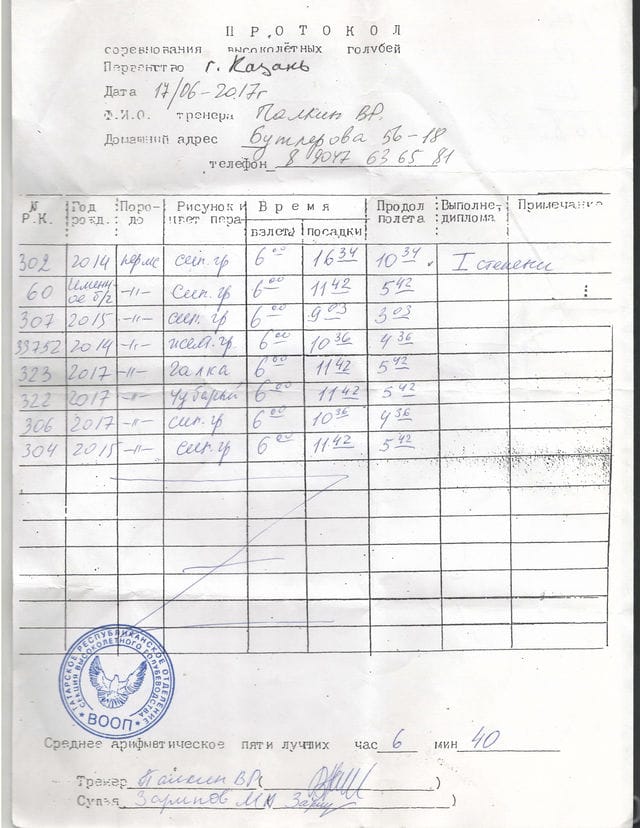 ПРОТОКОЛ
соревнования высоколётных голубей
Первенство г. Казань
Дата 17/06-2017г
Ф.И.О. тренера Палкин В.Р.
Домашний адрес Бутлерова 56-18
телефон 8 9047 63 65 81
№ Р.К. Год рожд. Поро- до Рисунок и цвет пера Время взлета посадки Продол полета Выполнение диплома Примечание
302 2014 пермс сип.гр 6 00 16 34 10 34 I степени
60 б/г -"- сип.гр 6 00 11 42 5 42
307 2015 -"- сип.гр 6 00 9 03 3 03
33752 2014 -"- желт.гр. 6 00 10 36 4 36
323 2017 -"- галка 6 00 11 42 5 42
322 2017 -"- чубарый 6 00 11 42 5 42
306 2017 -"- сип.гр 6 00 10 36 4 36
304 2015 -"- сип.гр 6 00 11 42 5 42
ТАТАРСКОЕ РЕСПУБЛИКАНСКОЕ ОТДЕЛЕНИЕ
СЕКЦИЯ ВЫСОКОЛЕТНОГО ГОЛУБЕВОДСТВА
ВООП
Среднее арифметическое пяти лучших час 6 мин 40
Тренер Палкин ВР( )
Судья Зарипов МН )